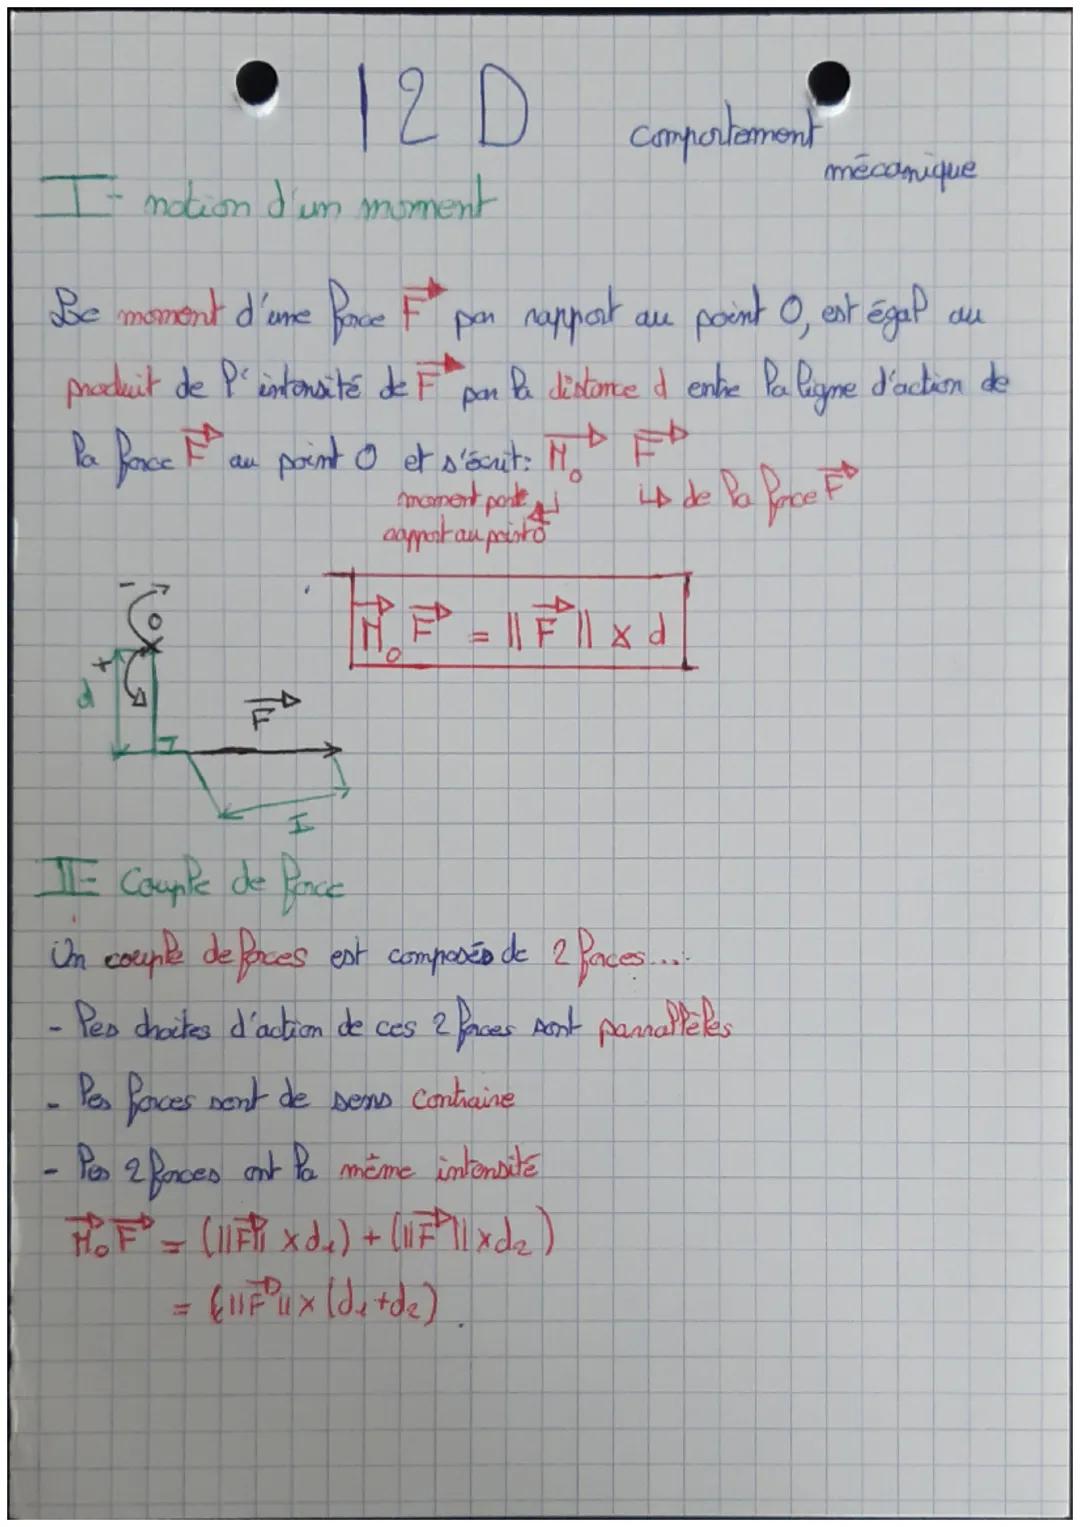 I2D
comportement
mécanique
I - notion d'un moment
Le moment d'une force F par rapport au point O, est égal au
produit de l'intensité de F par la distance d entre la ligne d'action de
la force F au point O et s'écrit: M₀ F
moment par
rapport au point O
↳ de la force F
M₀ F = ||F|| x d
-
O
+
d
F
I
II - Couple de force
Un couple de forces est composés de 2 forces....
- les droites d'action de ces 2 forces sont parrallèles
- les forces sont de sens contraire
- les 2 forces ont la même intensité
M₀ F = (||F|| x d₁) + (||F|| x d₂)
= (||F|| x (d₁+d₂)